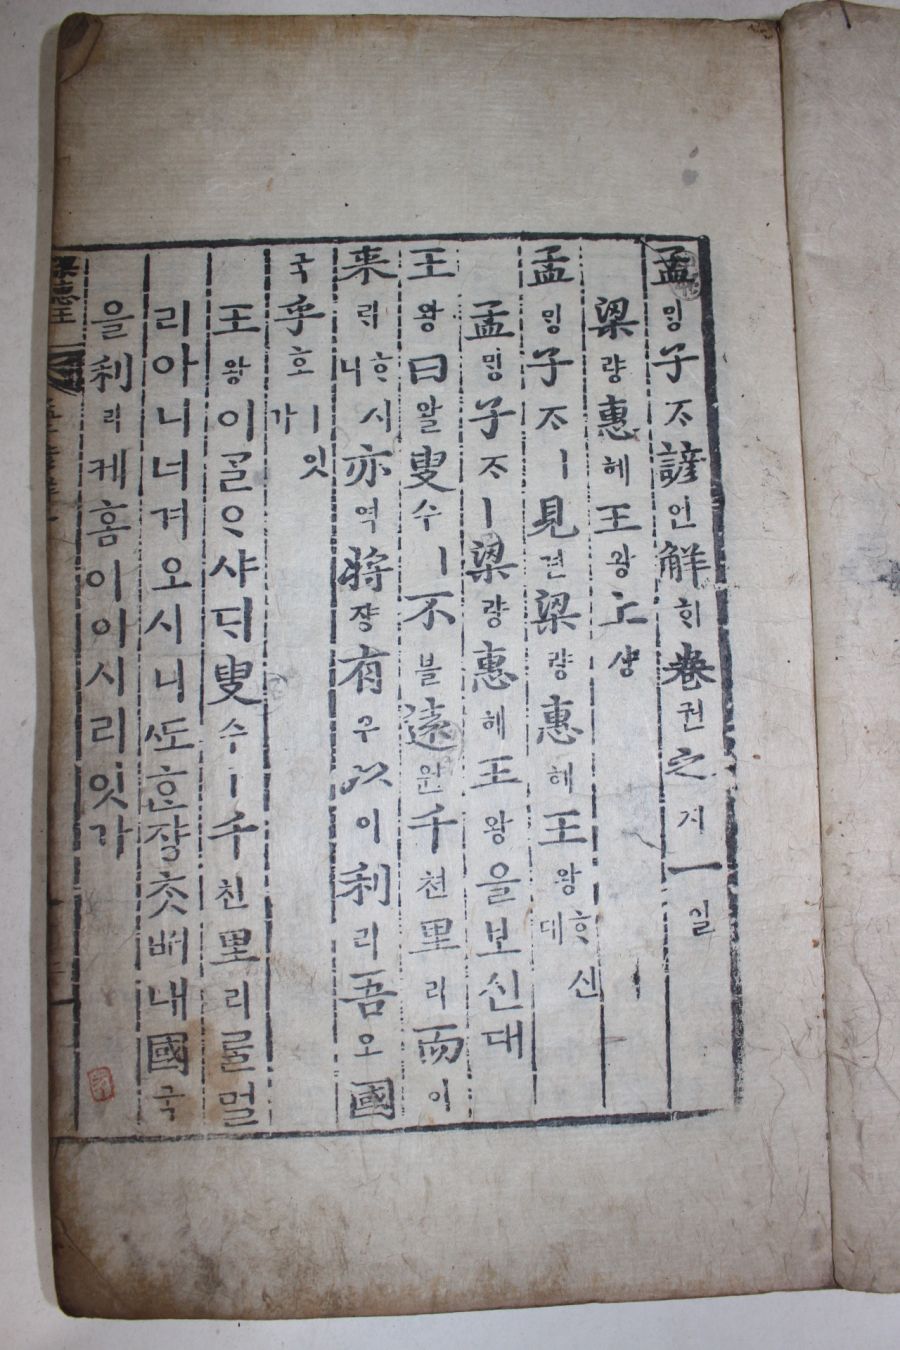 孟ᄆᆡᆼ子ᄌᆞ諺언解ᄒᆡ卷권之지一일
梁량惠혜王왕上샹
孟ᄆᆡᆼ子ᄌᆞㅣ見견梁량惠혜王왕ᄒᆞ신대
孟ᄆᆡᆼ子ᄌᆞㅣ梁량惠혜王왕을보신대
王왕曰왈叟수ㅣ不블遠원千쳔里리而이
来ᄅᆡᄒᆞ시니亦역將쟝有유以이利리吾오國
국乎호ㅣ잇가
王왕이ᄀᆞᆯᄋᆞ샤ᄃᆡ叟수ㅣ千쳔里리ᄅᆞᆯ멀
리아니너겨오시니ᄯᅩᄒᆞᆫ쟝ᄎᆞᆺᄡᅥ내國국
을利리케홈이이시리잇가
梁惠王